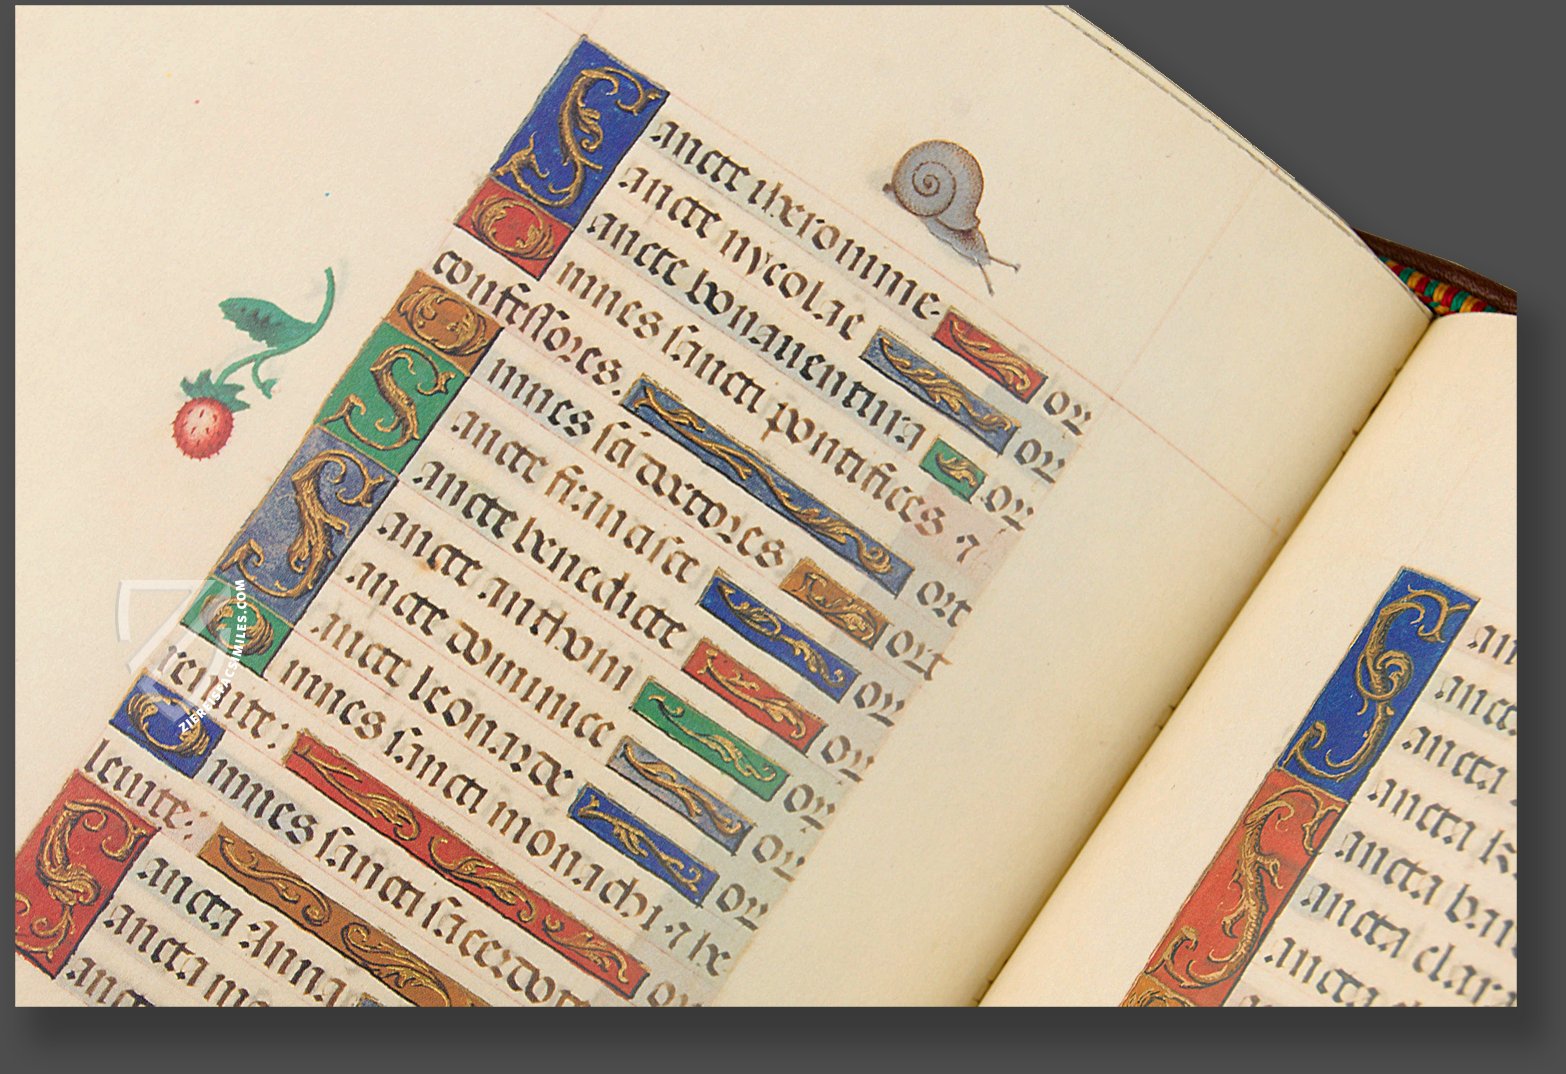 Sancte iheronime. or
ancte nycolae or
ancte bonauentura or
Omnes sancti pontifices ⁊
confessores. ort
Omnes sci doctores ort
Sancte francisce or
ancte benedicte or
Sancte anthoni or
ancte dominice or
ancte leonarde or
Omnes sancti monachi ⁊ he
remite: or
Omnes sancti sacerdot
leuite:
Sancta Anna
ancta ma
anc
San
anct
ancta
Sancta k
ancta
ancta clar
ancta
ZIEREIS FACSIMILES.COM